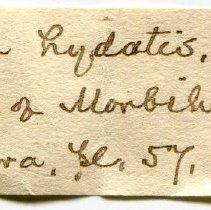 Hydatis,
of Morbih
Pl. 57,